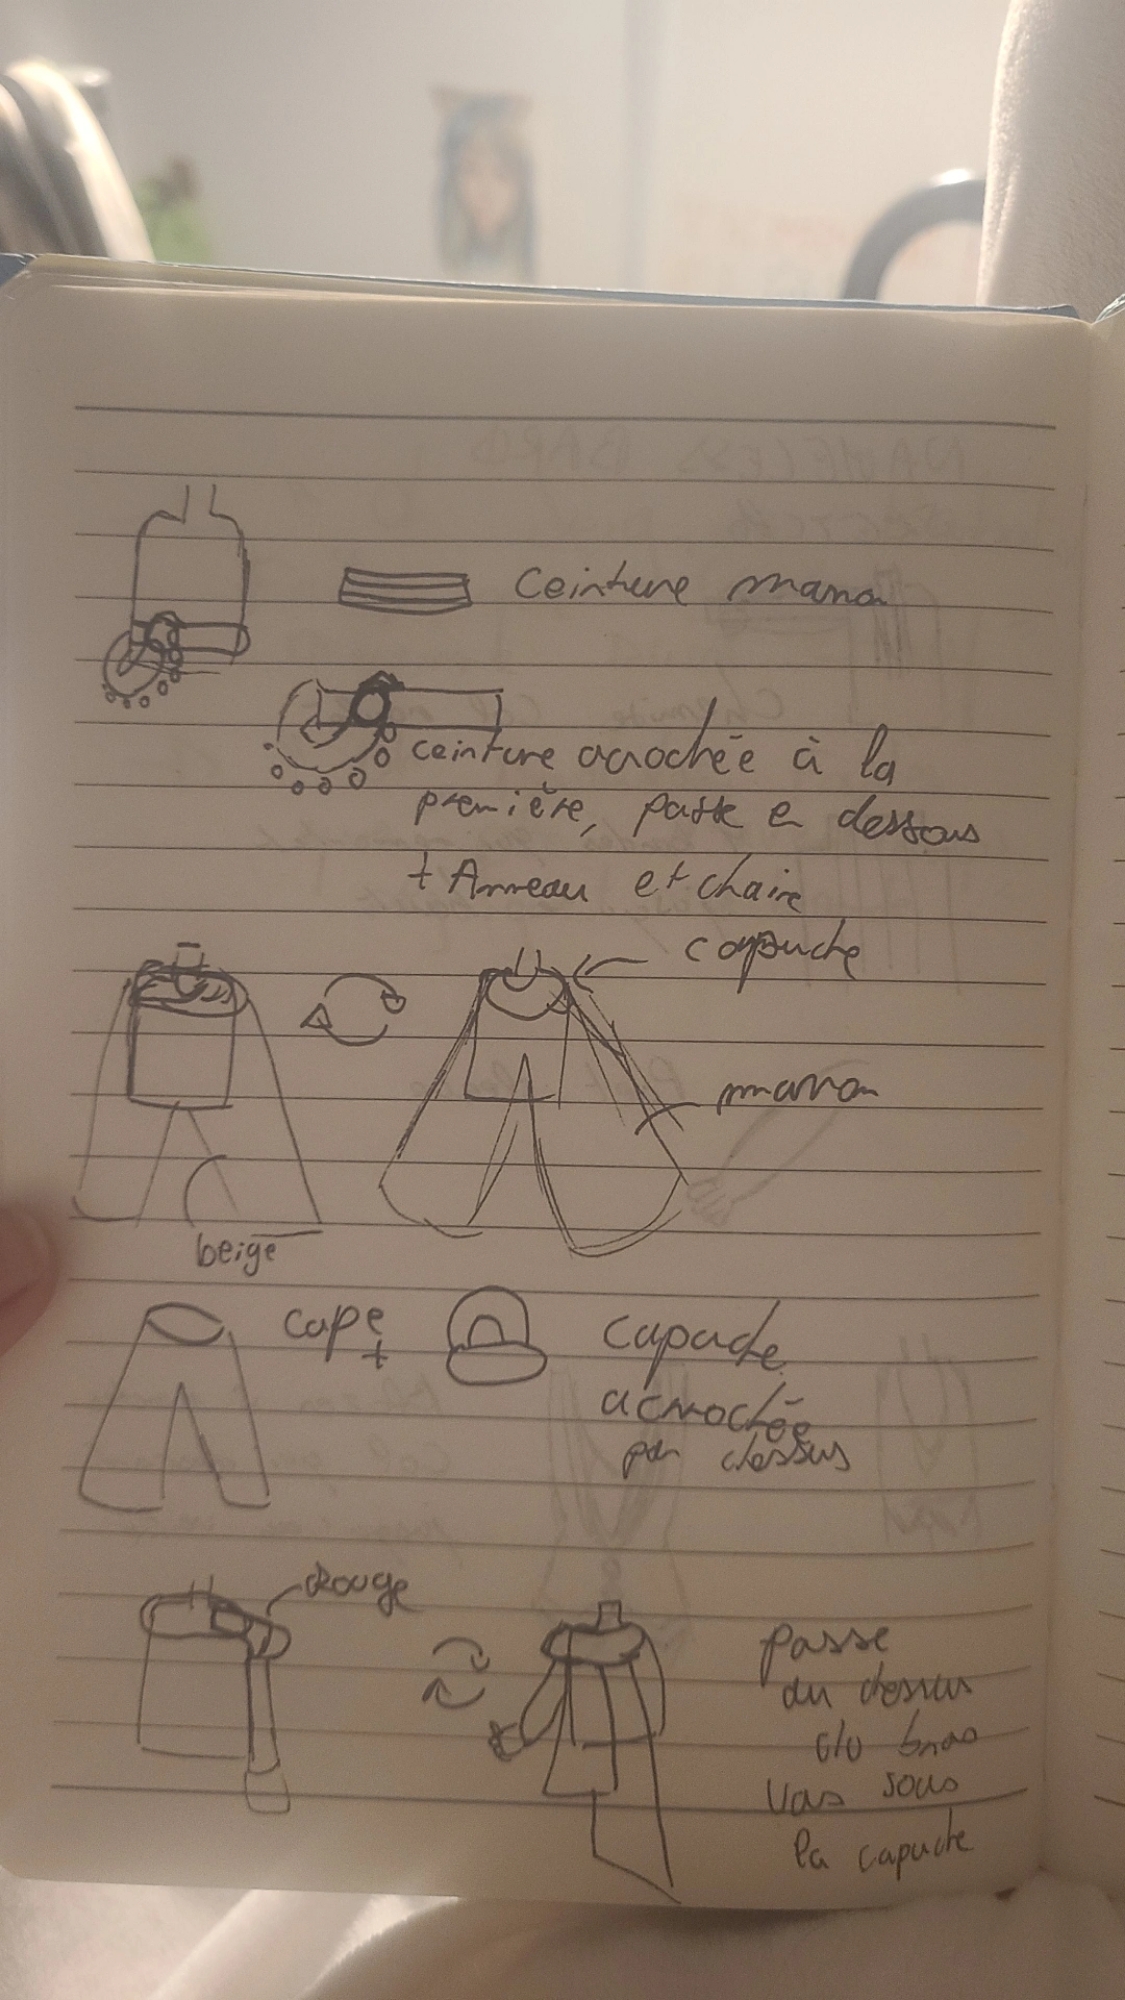 Ceinture marron
ceinture acrochée à la
première, passe en dessous
+ Anneau et chaine
capuche
marron
beige
cape
+
Capuche
acrochée
par dessus
Rouge
passe
au dessus
du bras
vas sous
la capuche